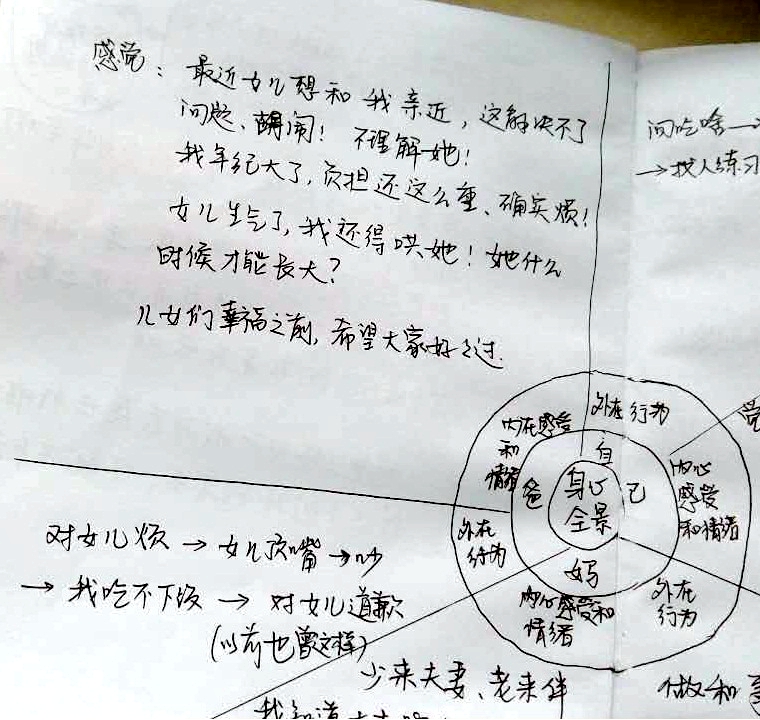 感觉：最近女儿想和我亲近，这解决不了
问题、胡闹！不理解她！
我年纪大了，负担还这么重、确实烦！
女儿生气了，我还得哄她！她什么
时候才能长大？
儿女们幸福之前，希望大家好好过.
问吃啥→
→找人练习
外在行为
内在感受
和
情绪
自
己
爸
妈
身心
全景
内心
感受
和情绪
外在
行为
外在
行为
内心感受和
情绪
觉
对女儿烦→女儿顶嘴→吵
→我吃不下饭→对女儿道歉
(以前也曾这样)
少来夫妻、老来伴
我知道
做和